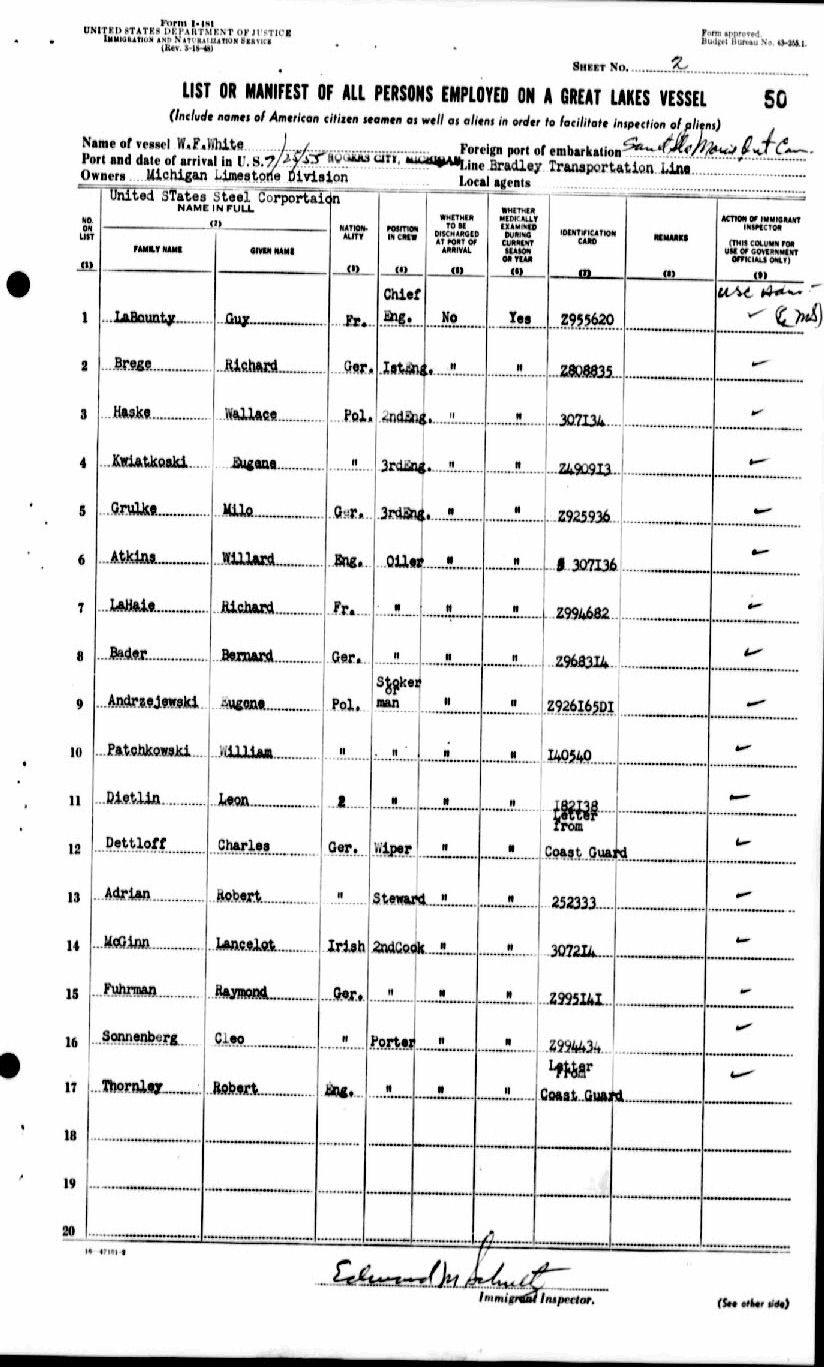 Form I-481
UNITED STATES DEPARTMENT OF JUSTICE
IMMIGRATION AND NATURALIZATION SERVICE
(Rev. 3-18-48)
Form approved.
Budget Bureau No. 43-R55.1.
SHEET No. 2
LIST OR MANIFEST OF ALL PERSONS EMPLOYED ON A GREAT LAKES VESSEL 50
(Include names of American citizen seamen as well as aliens in order to facilitate inspection of aliens)
Name of vessel W.F.White
Foreign port of embarkation Sault Ste Marie Ont Can.
Port and date of arrival in U.S. 7/25/55 ROGERS CITY, MICHIGAN
Line Bradley Transportation Line
Owners Michigan Limestone Division
Local agents
United STates Steel Corportaion
NO. ON LIST (1)
NAME IN FULL (2)
FAMILY NAME GIVEN NAME
NATION-ALITY (3)
POSITION IN CREW (4)
WHETHER TO BE DISCHARGED AT PORT OF ARRIVAL (5)
WHETHER MEDICALLY EXAMINED DURING CURRENT SEASON OR YEAR (6)
IDENTIFICATION CARD (7)
REMARKS (8)
ACTION OF IMMIGRANT INSPECTOR (THIS COLUMN FOR USE OF GOVERNMENT OFFICIALS ONLY) (9)
USC Adm
1 LaBounty Guy Fr. Chief Eng. No Yes Z955620
2 Brege Richard Ger. IstEng. " " Z808835
3 Haske Wallace Pol. 2ndEng. " " 307I34
4 Kwiatkoski Eugene " 3rdEng. " " Z4909I3
5 Grulke Milo Ger. 3rdEng. " " Z925936
6 Atkins Willard Eng. Oiler " " 307I36
7 LaHaie Richard Fr. " " " Z994682
8 Bader Bernard Ger. " " " Z9683I4
9 Andrzejewski Eugene Pol. Stoker or man " " Z926I65DI
10 Patchkowski William " " " " I40540
11 Dietlin Leon " " " I82I38
12 Dettloff Charles Ger. Wiper " " Letter from Coast Guard
13 Adrian Robert " Steward " " 252333
14 McGinn Lancelot Irish 2ndCook " " 3072I4
15 Fuhrman Raymond Ger. " " " Z995I4I
16 Sonnenberg Cleo " Porter " " Z994434
17 Thornley Robert Eng. " " " Letter from Coast Guard
18
19
20
Edward M Schultz
Immigrant Inspector.
(See other side)